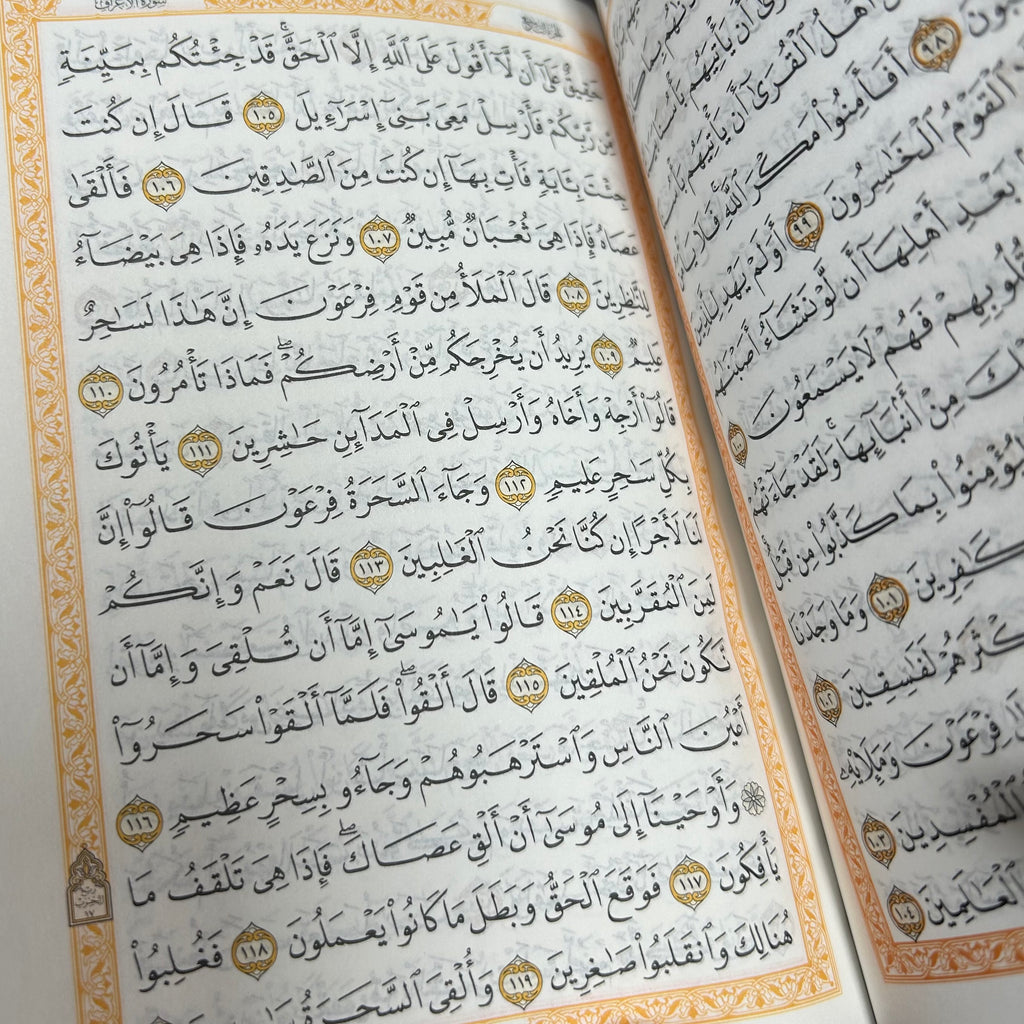 أَهْلُ ٱلْقُرَىٰٓ أَن يَأْتِيَهُم
٩٨ أَفَأَمِنُوا۟ مَكْرَ ٱللَّهِ فَلَا
ٱلْقَوْمُ ٱلْخَـٰسِرُونَ ٩٩ أَوَلَمْ يَهْدِ لِلَّذِينَ
بَعْدِ أَهْلِهَآ أَن لَّوْ نَشَآءُ أَصَبْنَـٰهُم
قُلُوبِهِمْ فَهُمْ لَا يَسْمَعُونَ ١٠٠
مِنْ أَنۢبَآئِهَا ۚ وَلَقَدْ جَآءَتْهُمْ
بِمَا كَذَّبُوا۟ مِن قَبْلُ
١٠١ وَمَا وَجَدْنَا
لَفَـٰسِقِينَ ١٠٢
فِرْعَوْنَ وَمَلَإِي۟هِۦ
ٱلْمُفْسِدِينَ ١٠٣
ٱلْعَـٰلَمِينَ ١٠٤
سورة الأعراف
حَقِيقٌ عَلَىٰٓ أَن لَّآ أَقُولَ عَلَى ٱللَّهِ إِلَّا ٱلْحَقَّ ۚ قَدْ جِئْتُكُم بِبَيِّنَةٍ
مِّن رَّبِّكُمْ فَأَرْسِلْ مَعِىَ بَنِىٓ إِسْرَٰٓءِيلَ ١٠٥ قَالَ إِن كُنتَ
جِئْتَ بِـَٔايَةٍ فَأْتِ بِهَآ إِن كُنتَ مِنَ ٱلصَّـٰدِقِينَ ١٠٦ فَأَلْقَىٰ
عَصَاهُ فَإِذَا هِىَ ثُعْبَانٌ مُّبِينٌ ١٠٧ وَنَزَعَ يَدَهُۥ فَإِذَا هِىَ بَيْضَآءُ
لِلنَّـٰظِرِينَ ١٠٨ قَالَ ٱلْمَلَأُ مِن قَوْمِ فِرْعَوْنَ إِنَّ هَـٰذَا لَسَـٰحِرٌ
عَلِيمٌ ١٠٩ يُرِيدُ أَن يُخْرِجَكُم مِّنْ أَرْضِكُمْ ۖ فَمَاذَا تَأْمُرُونَ ١١٠
قَالُوٓا۟ أَرْجِهْ وَأَخَاهُ وَأَرْسِلْ فِى ٱلْمَدَآئِنِ حَـٰشِرِينَ ١١١ يَأْتُوكَ
بِكُلِّ سَـٰحِرٍ عَلِيمٍ ١١٢ وَجَآءَ ٱلسَّحَرَةُ فِرْعَوْنَ قَالُوٓا۟ إِنَّ
لَنَا لَأَجْرًا إِن كُنَّا نَحْنُ ٱلْغَـٰلِبِينَ ١١٣ قَالَ نَعَمْ وَإِنَّكُمْ
لَمِنَ ٱلْمُقَرَّبِينَ ١١٤ قَالُوا۟ يَـٰمُوسَىٰٓ إِمَّآ أَن تُلْقِىَ وَإِمَّآ أَن
نَّكُونَ نَحْنُ ٱلْمُلْقِينَ ١١٥ قَالَ أَلْقُوا۟ ۖ فَلَمَّآ أَلْقَوْا۟ سَحَرُوٓا۟
أَعْيُنَ ٱلنَّاسِ وَٱسْتَرْهَبُوهُمْ وَجَآءُو بِسِحْرٍ عَظِيمٍ ١١٦
۞ وَأَوْحَيْنَآ إِلَىٰ مُوسَىٰٓ أَنْ أَلْقِ عَصَاكَ ۖ فَإِذَا هِىَ تَلْقَفُ مَا
يَأْفِكُونَ ١١٧ فَوَقَعَ ٱلْحَقُّ وَبَطَلَ مَا كَانُوا۟ يَعْمَلُونَ ١١٨ فَغُلِبُوا۟
هُنَالِكَ وَٱنقَلَبُوا۟ صَـٰغِرِينَ ١١٩ وَأُلْقِىَ ٱلسَّحَرَةُ